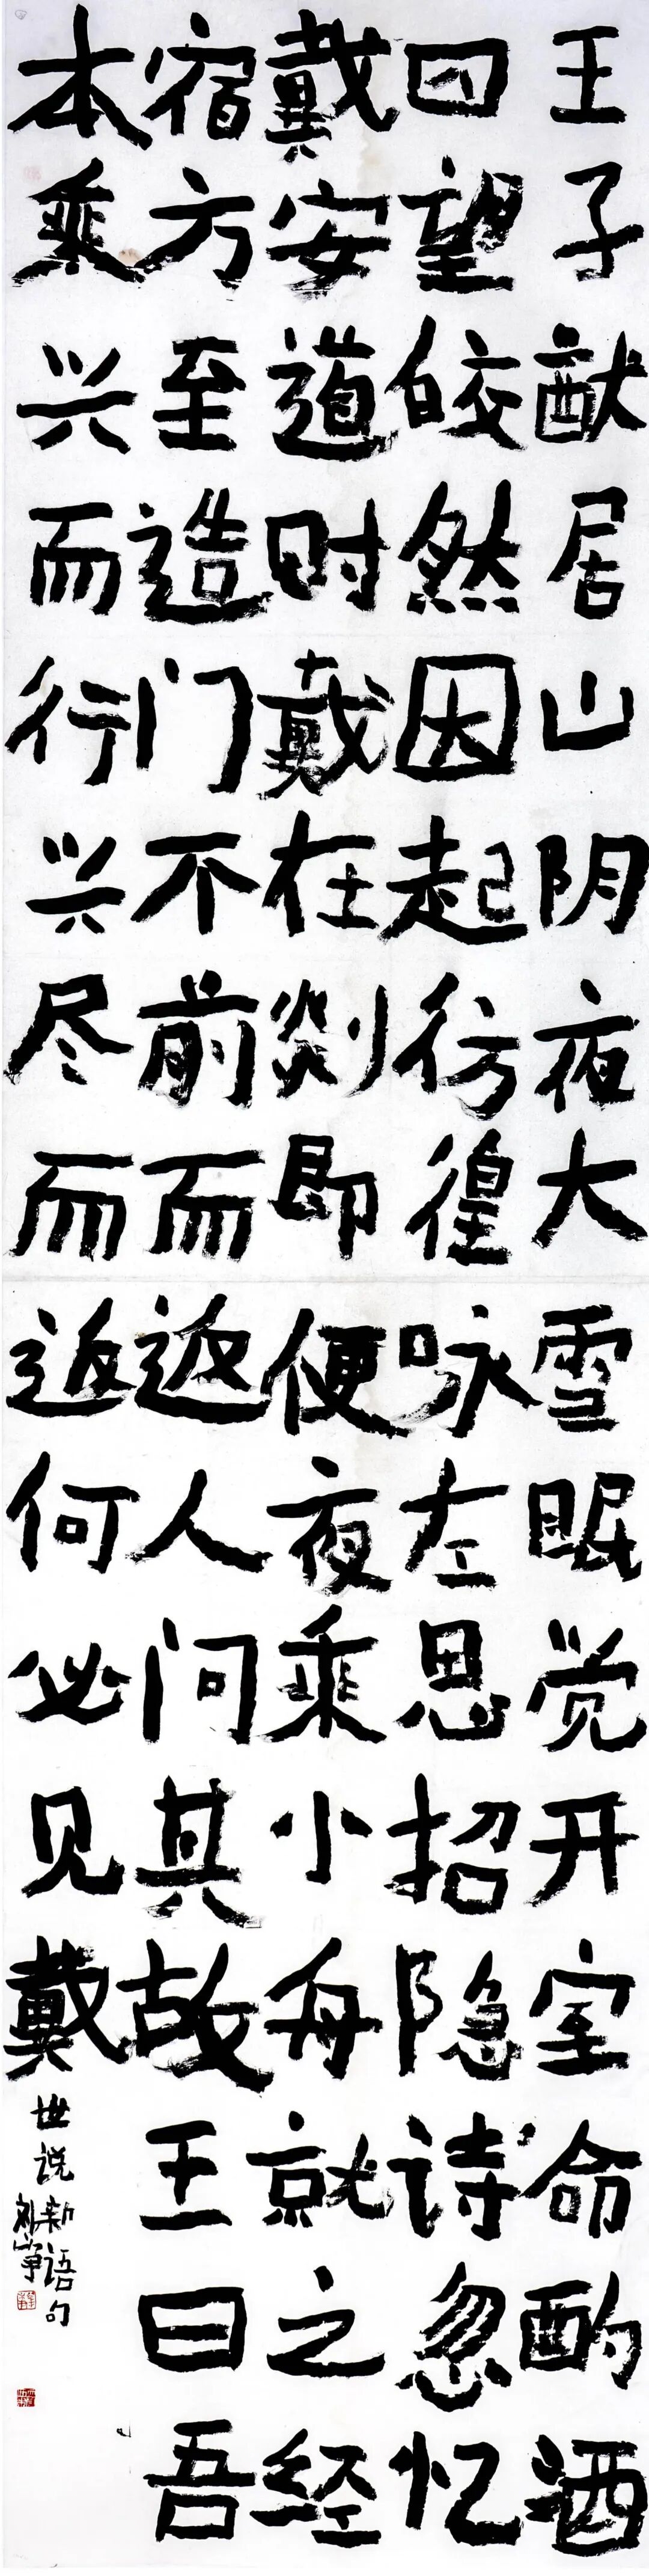 王子猷居山阴夜大雪眠觉开室命酌酒
四望皎然因起彷徨咏左思招隐诗忽忆
戴安道时戴在剡即便夜乘小舟就之经
宿方至造门不前而返人问其故王曰吾
本乘兴而行兴尽而返何必见戴
世说新语句